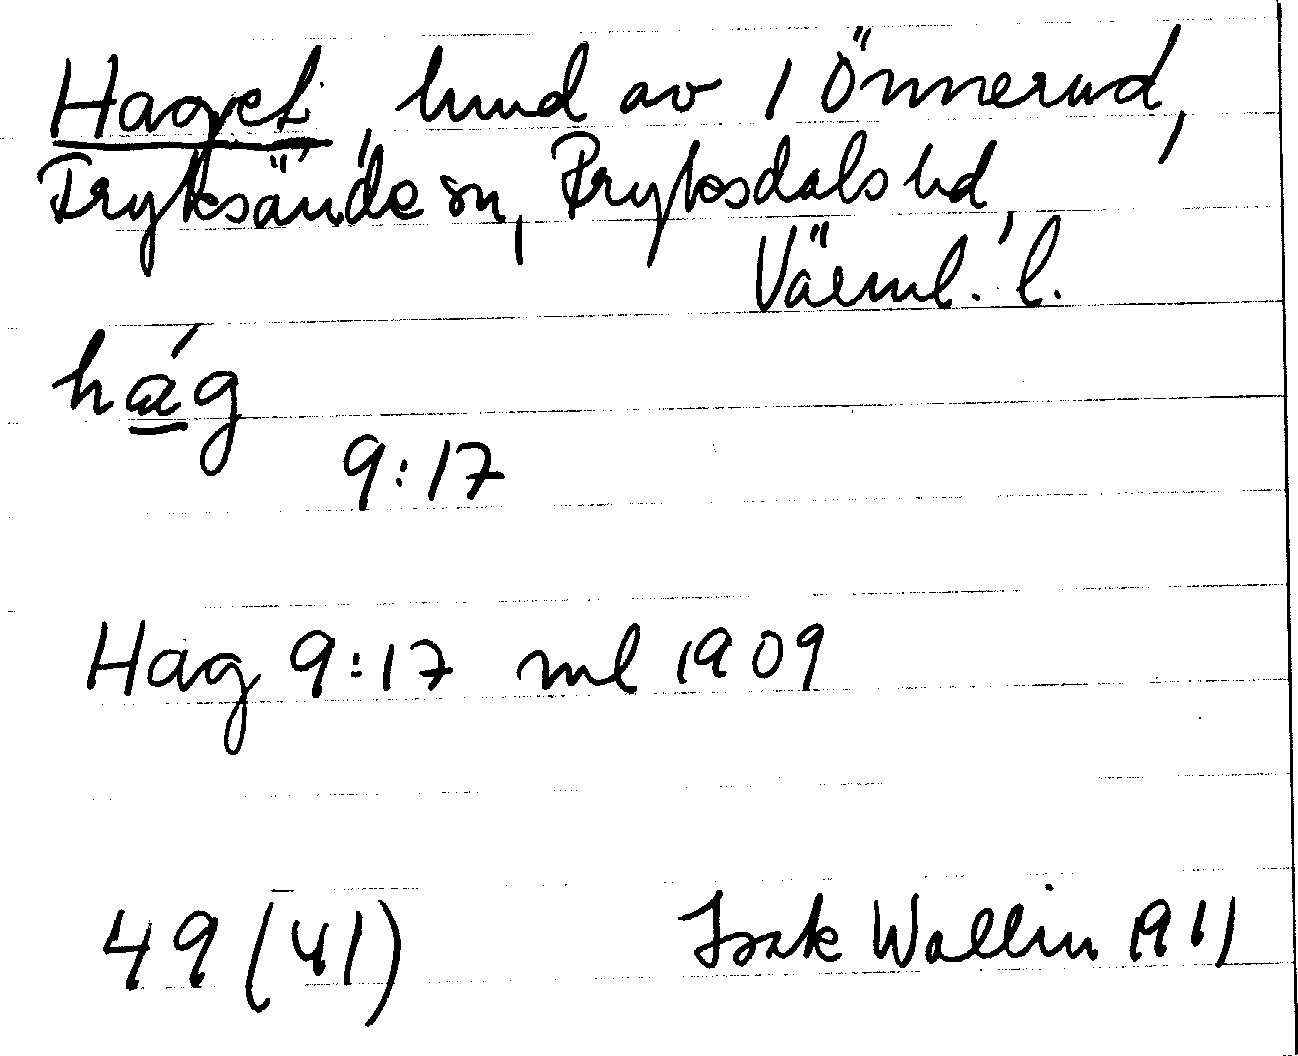 Haget, hmd av 1 Önnerud,
Fryksände sn, Fryksdals hd,
Värml. l.
hág
9:17
Hag 9:17 ml 1909
49 (41) Isak Wallin 1911